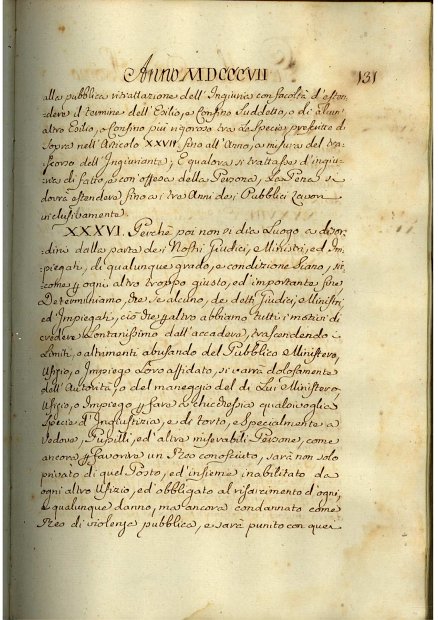 Anno MDCCCVII 131
alla pubblica ritrattazione dell'Ingiuria con facoltà d'esten=
:dere il termine dell'Esilio, o Confino suddetto, o di alcun'
altro Esilio, o Confino più rigoroso tra le Specie prescritte di
sopra nell'Articolo XXVII sino all'Anno, a misura del tra=
:scorso dell'Ingiuriante; E qualora si trattasse d'ingiu=
:ria di fatto, e con offesa della Persona, La Pena si
dovrà estendere sino a i tre Anni de i Pubblici Lavori
inclusivamente.
XXXVI. Perchè poi non si dia Luogo a disor=
:dini dalla parte de i Nostri Giudici, e Ministri, ed Im=
:piegati, di qualunque grado, e condizione siano, sic=
:come ogni altro troppo giusto, ed importante fine
Determiniamo, che se alcuno, de detti Giudici, e Ministri
ed Impiegati, ciò che altro abbiamo tutti i motivi di
credere Lontanissimo dall'accadere, trascendendo i
Limiti, o altrimenti abusando del Pubblico Ministero,
Ufizio, o Impiego Loro affidato, si varrà dolosamente
dell'Autorità, o del maneggio del di Lui Ministero,
Ufizio, o Impiego fare a chicchessia qualsivoglia
specie d'Ingiustizia, e di torto, e specialmente a
Vedove, Pupilli, ed altre miserabili Persone, come
ancora favorire un Reo conosciuto, sarà non solo
privato di quel Posto, ed insieme inabilitato da
ogni altro Ufizio, ed obbligato al risarcimento d'ogni,
e qualunque danno, ma ancora condannato come
Reo di violenza pubblica, e sarà punito con quel